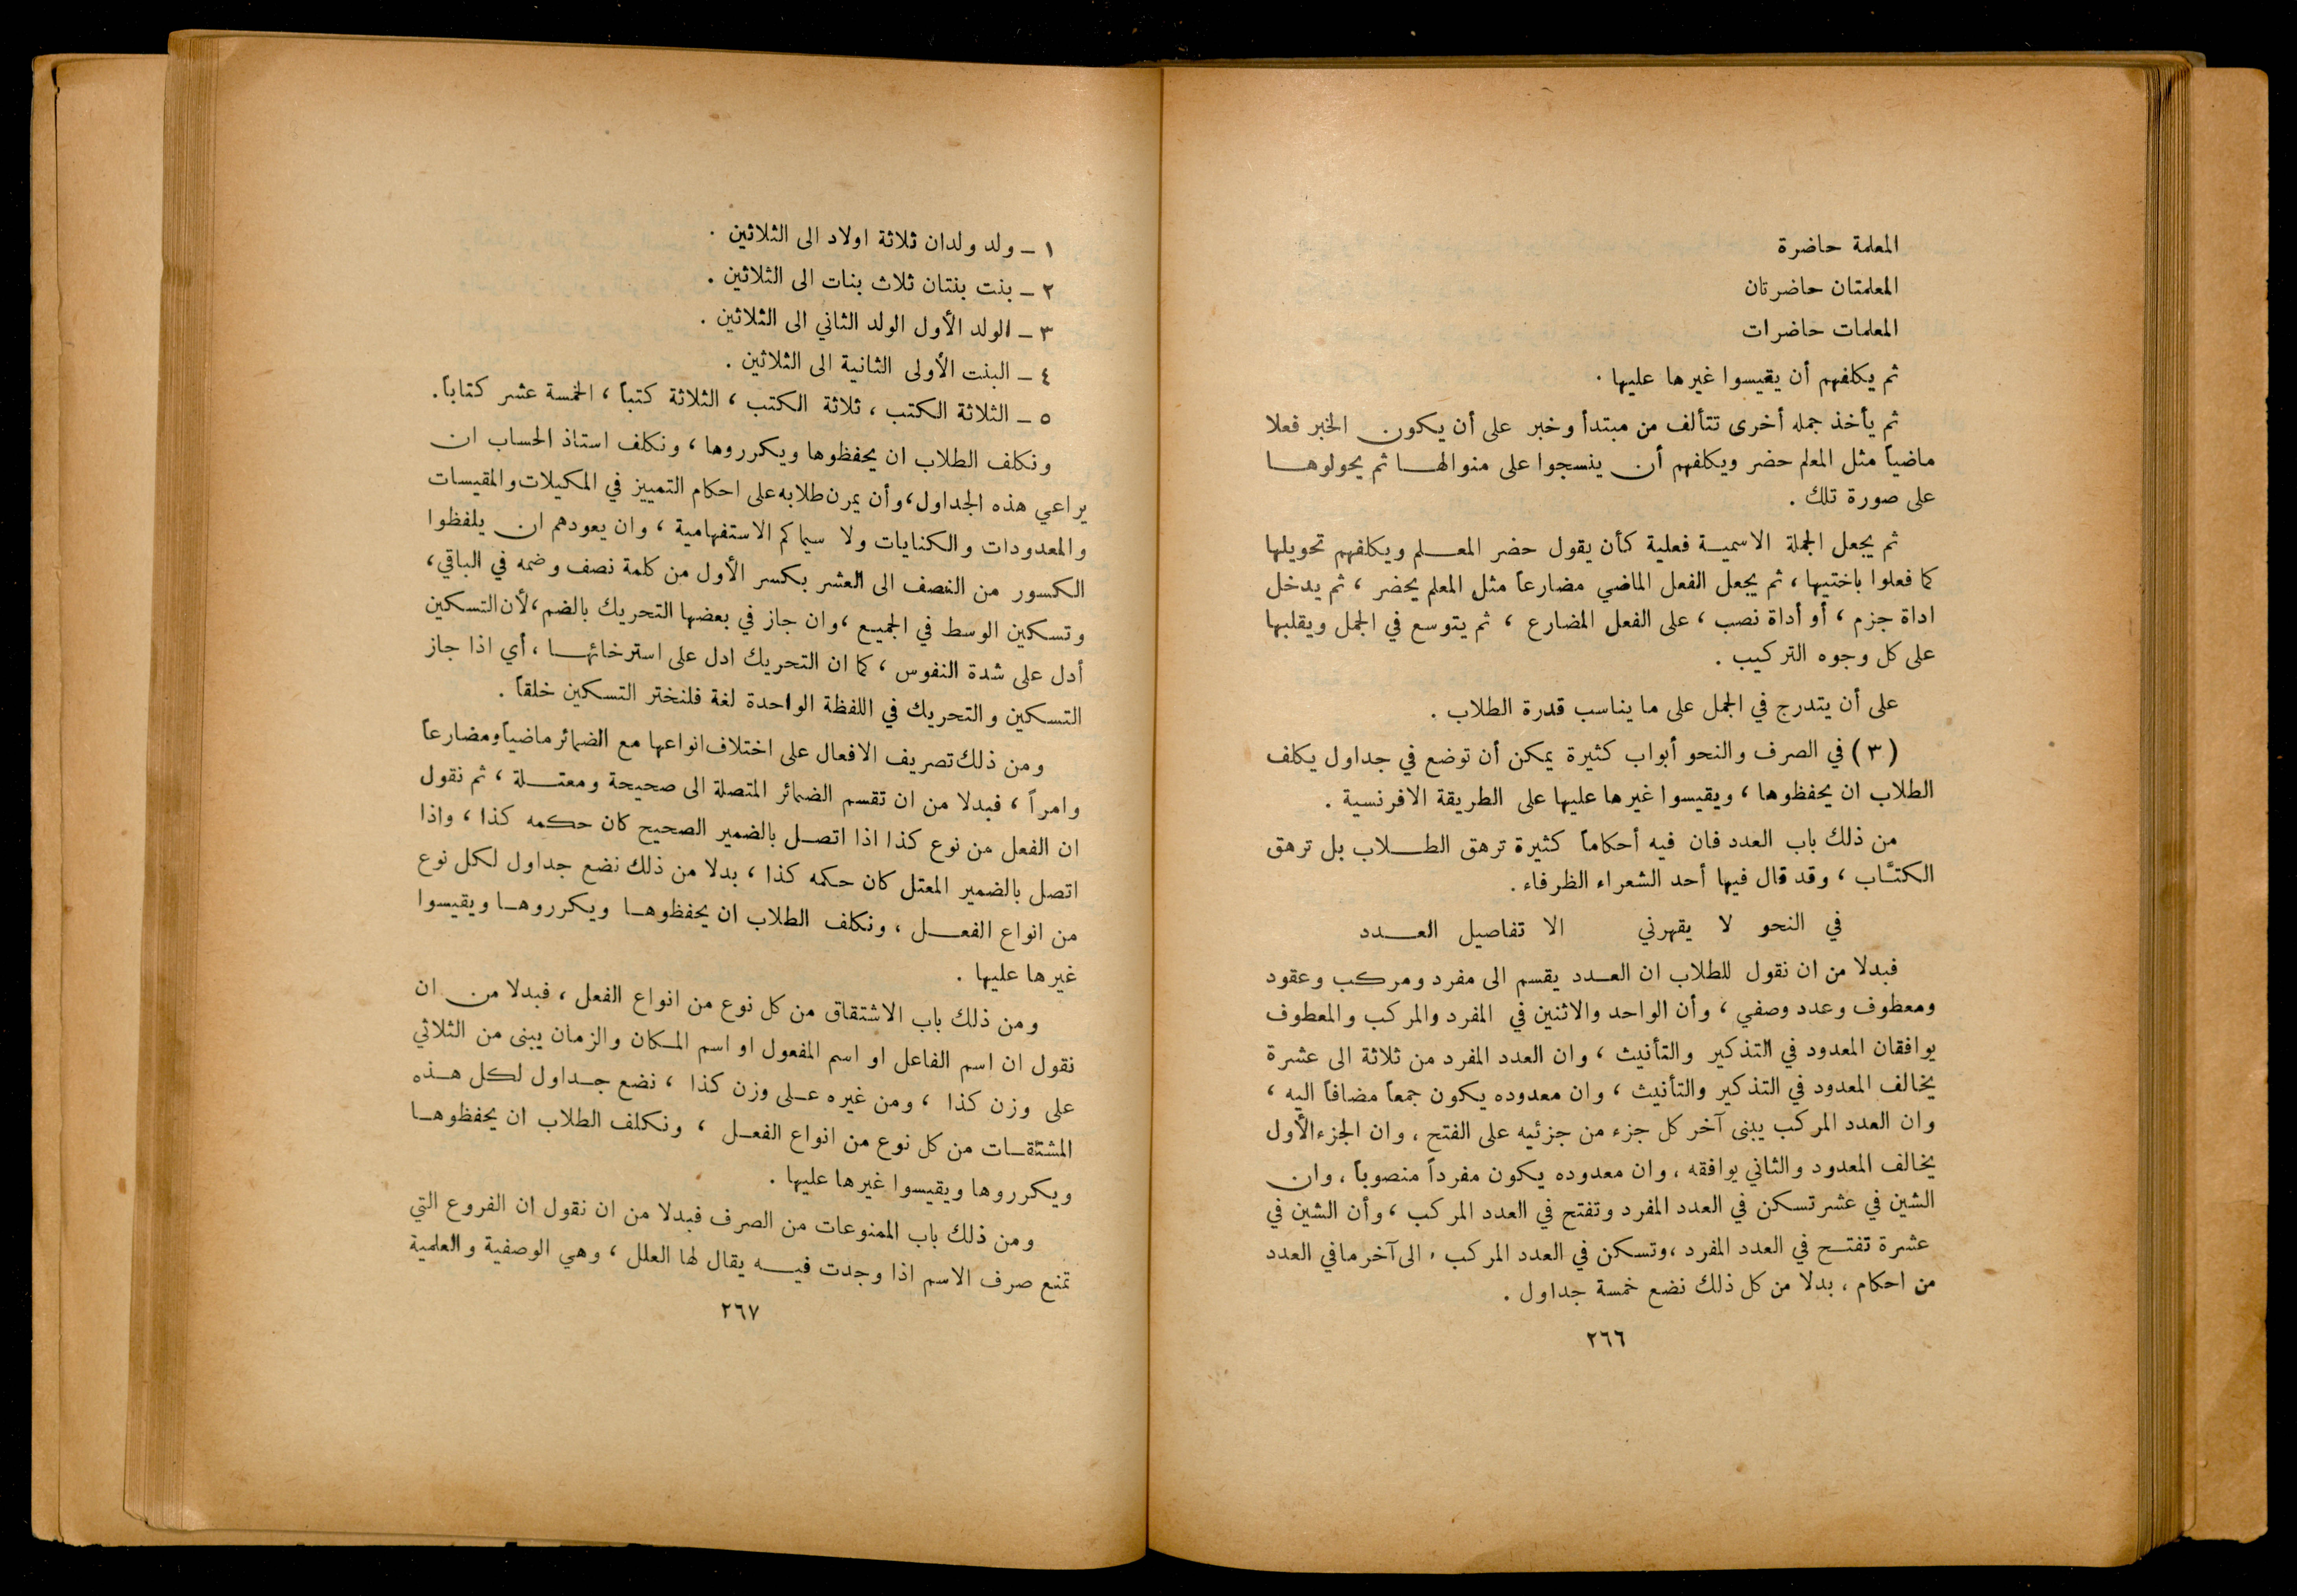 المعلمة حاضرة
المعلمتان حاضرتان
المعلمات حاضرات
ثم يكلفهم أن يقيسوا غيرها عليها .
ثم يأخذ جمله أخرى تتألف من مبتدأ وخبر على أن يكون الخبر فعلا
ماضياً مثل المعلم حضر ويكلفهم أن ينسجوا على منوالها ثم يحولوها
على صورة تلك .
ثم يجعل الجملة الاسمية فعلية كأن يقول حضر المعلم ويكلفهم تحويلها
كما فعلوا باختيها ، ثم يجعل الفعل الماضي مضارعاً مثل المعلم يحضر ، ثم يدخل
اداة جزم ، أو أداة نصب ، على الفعل المضارع ، ثم يتوسع في الجمل ويقلبها
على كل وجوه التركيب .
على أن يتدرج في الجمل على ما يناسب قدرة الطلاب .
(٣) في الصرف والنحو أبواب كثيرة يمكن أن توضع في جداول يكلف
الطلاب ان يحفظوها ، ويقيسوا غيرها عليها على الطريقة الافرنسية .
من ذلك باب العدد فان فيه أحكاماً كثيرة ترهق الطلاب بل ترهق
الكتّاب ، وقد قال فيها أحد الشعراء الظرفاء .
في النحو لا يقهرني الا تفاصيل العدد
فبدلا من ان نقول للطلاب ان العدد يقسم الى مفرد ومركب وعقود
ومعطوف وعدد وصفي ، وأن الواحد والاثنين في المفرد والمركب والمعطوف
يوافقان المعدود في التذكير والتأنيث ، وان العدد المفرد من ثلاثة الى عشرة
يخالف المعدود في التذكير والتأنيث ، وان معدوده يكون جمعاً مضافاً اليه ،
وان العدد المركب يبنى آخر كل جزء من جزئيه على الفتح ، وان الجزء الأول
يخالف المعدود والثاني يوافقه ، وان معدوده يكون مفرداً منصوباً ، وان
الشين في عشر تسكن في العدد المفرد وتفتح في العدد المركب ، وأن الشين في
عشرة تفتح في العدد المفرد ، وتسكن في العدد المركب ، الى آخر ما في العدد
من احكام ، بدلا من كل ذلك نضع خمسة جداول .
٢٦٦
١ ـ ولد ولدان ثلاثة اولاد الى الثلاثين .
٢ ـ بنت بنتان ثلاث بنات الى الثلاثين .
٣ ـ الولد الأول الولد الثاني الى الثلاثين .
٤ ـ البنت الأولى الثانية الى الثلاثين .
٥ ـ الثلاثة الكتب ، ثلاثة الكتب ، الثلاثة كتباً ، الخمسة عشر كتاباً .
ونكلف الطلاب ان يحفظوها ويكرروها ، ونكلف استاذ الحساب ان
يراعي هذه الجداول ، وأن يمرن طلابه على احكام التمييز في المكيلات والمقيسات
والمعدودات والكنايات ولا سيما كم الاستفهامية ، وان يعودهم ان يلفظوا
الكسور من النصف الى العشر بكسر الأول من كلمة نصف وضمه في الباقي ،
وتسكين الوسط في الجميع ، وان جاز في بعضها التحريك بالضم ، لأن التسكين
أدل على شدة النفوس ، كما ان التحريك ادل على استرخائها ، أي اذا جاز
التسكين والتحريك في اللفظة الواحدة لغة فلنختر التسكين خلقاً .
ومن ذلك تصريف الافعال على اختلاف انواعها مع الضمائر ماضياً ومضارعاً
وامراً ، فبدلا من ان تقسم الضمائر المتصلة الى صحيحة ومعتلة ، ثم نقول
ان الفعل من نوع كذا اذا اتصل بالضمير الصحيح كان حكمه كذا ، واذا
اتصل بالضمير المعتل كان حكمه كذا ، بدلا من ذلك نضع جداول لكل نوع
من انواع الفعل ، ونكلف الطلاب ان يحفظوها ويكرروها ويقيسوا
غيرها عليها .
ومن ذلك باب الاشتقاق من كل نوع من انواع الفعل ، فبدلا من ان
نقول ان اسم الفاعل او اسم المفعول او اسم المكان والزمان يبنى من الثلاثي
على وزن كذا ، ومن غيره على وزن كذا ، نضع جداول لكل هذه
المشتقات من كل نوع من انواع الفعل ، ونكلف الطلاب ان يحفظوها
ويكرروها ويقيسوا غيرها عليها .
ومن ذلك باب الممنوعات من الصرف فبدلا من ان نقول ان الفروع التي
تمنع صرف الاسم اذا وجدت فيه يقال لها العلل ، وهي الوصفية والعلمية
٢٦٧